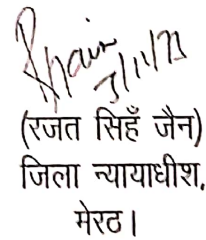 3/11/73
(रजत सिहँ जैन)
जिला न्यायाधीश,
मेरठ।